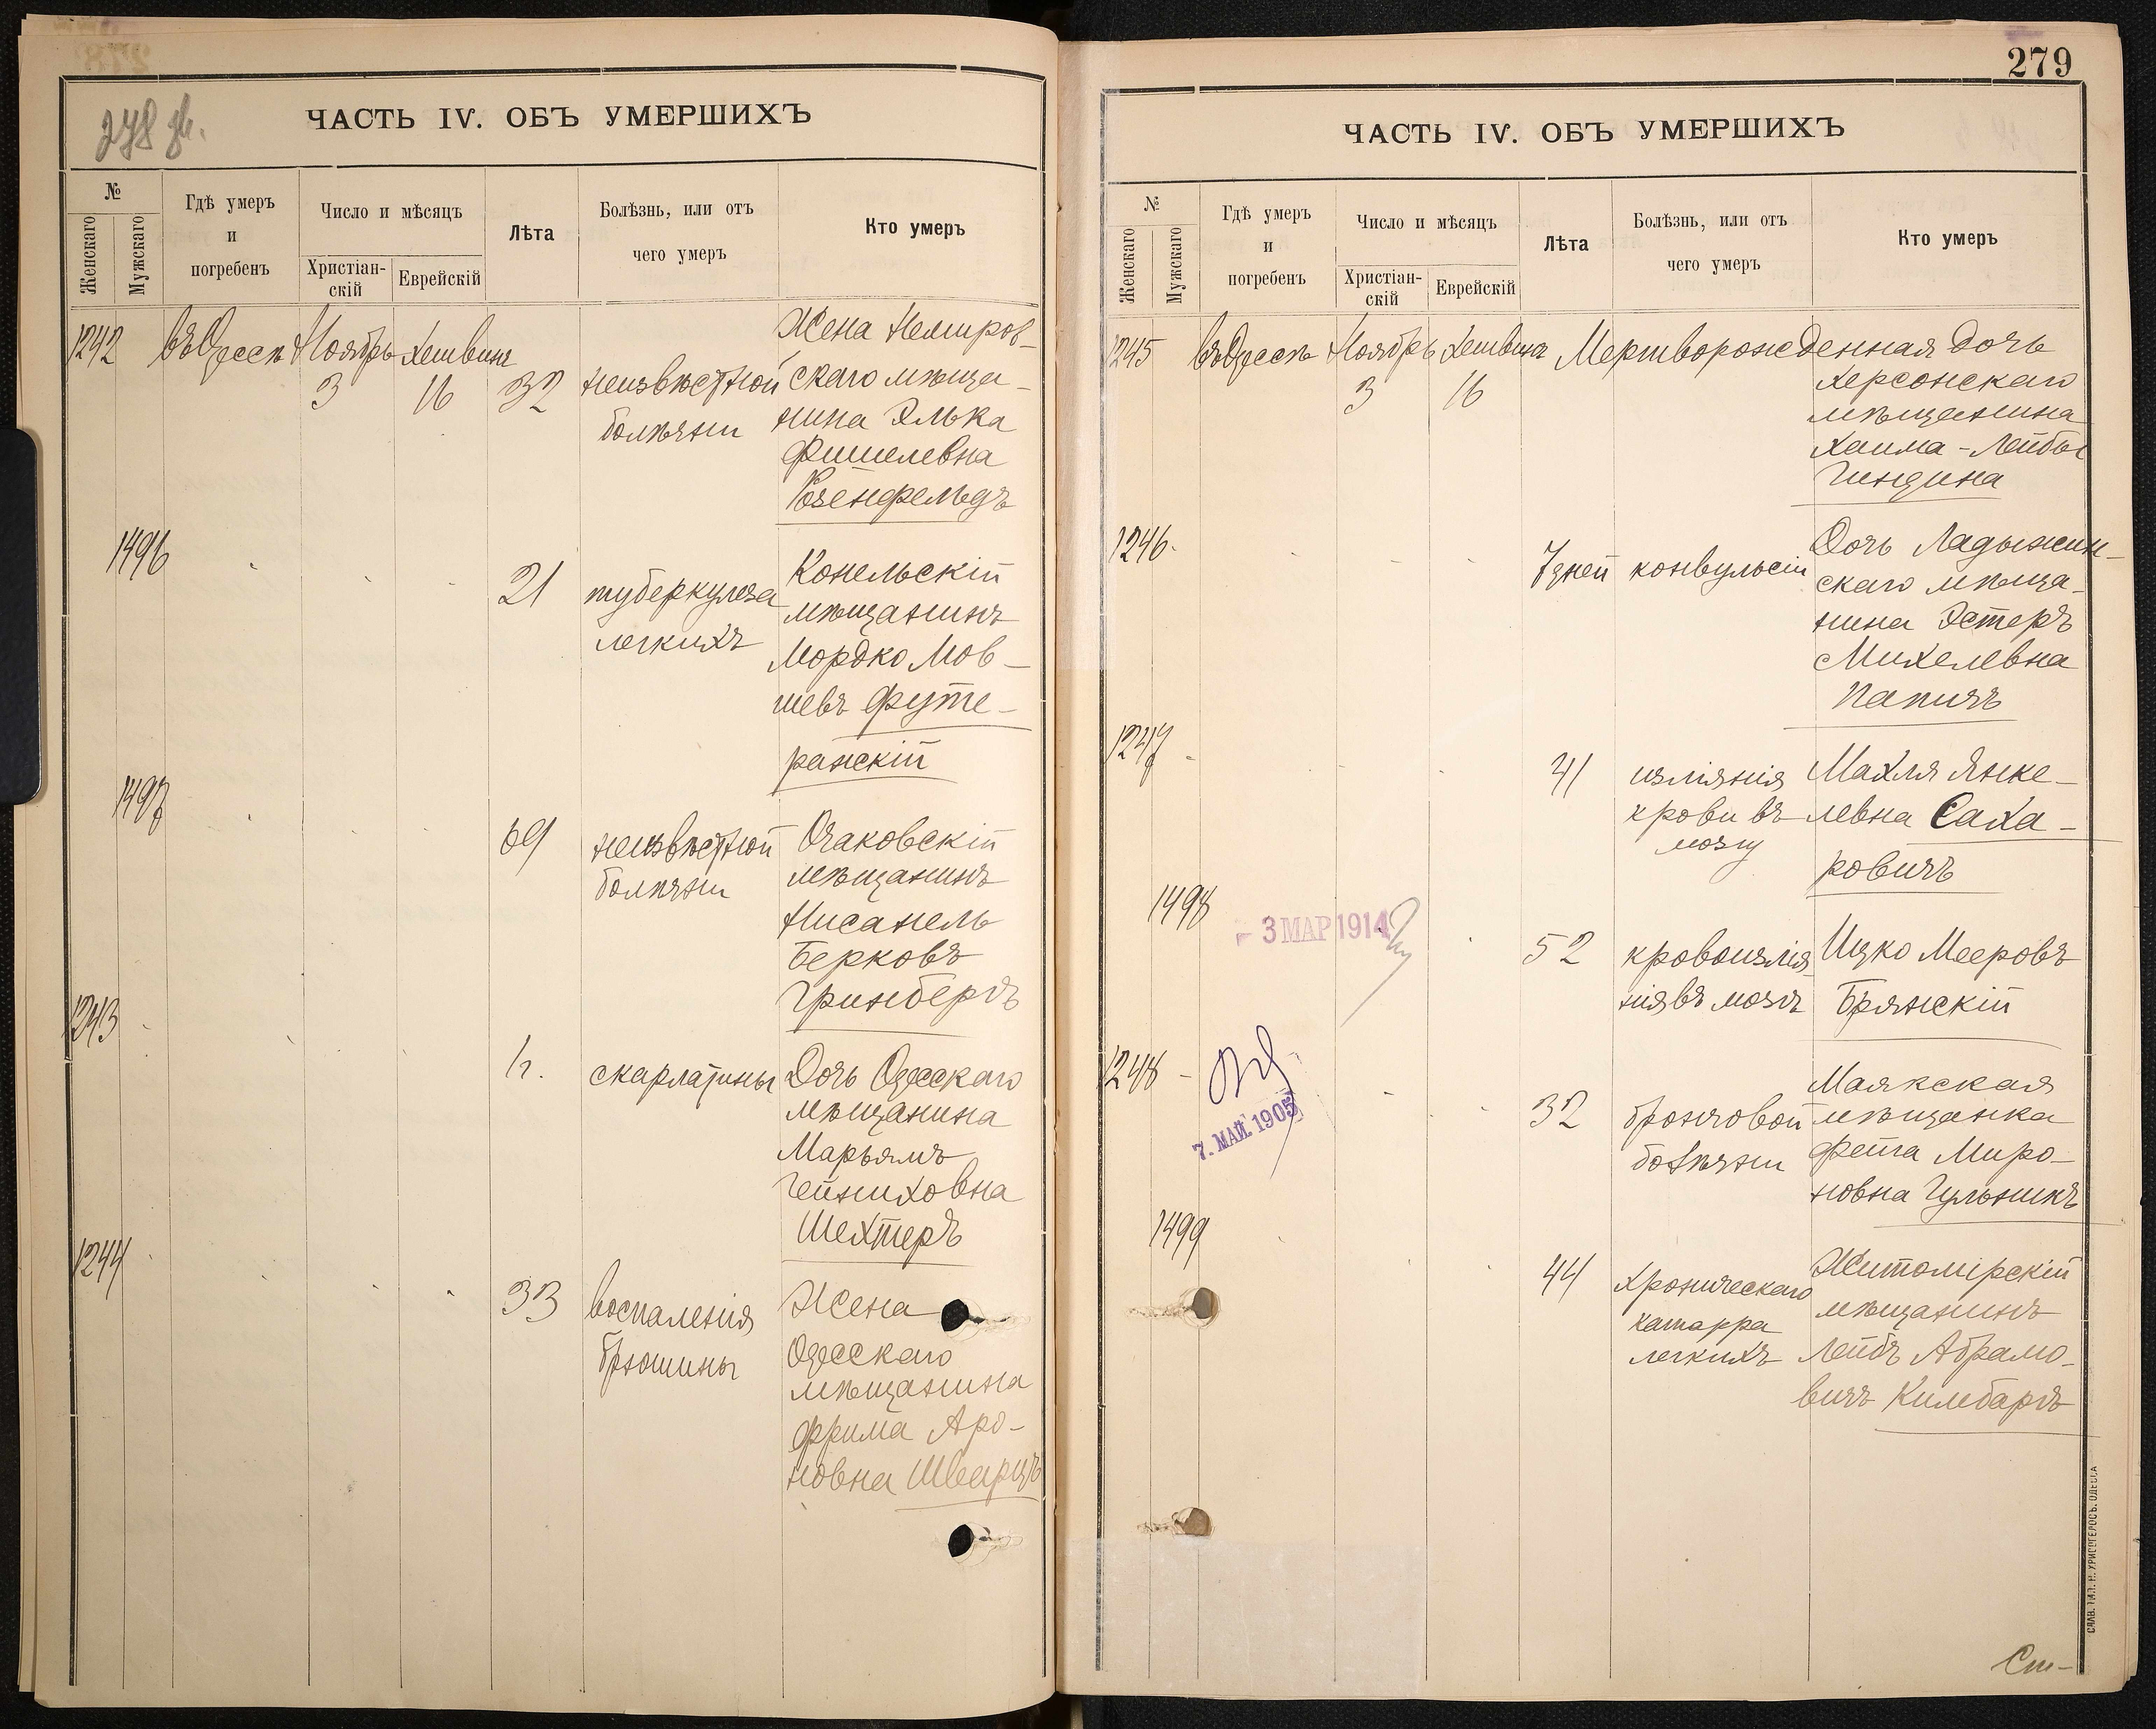 278 об.
ЧАСТЬ IV. ОБЪ УМЕРШИХЪ
№
Женскаго
Мужскаго
Гдѣ умеръ
и
погребенъ
Число и мѣсяцъ
Христіан-
скій
Еврейскій
Лѣта
Болѣзнь, или отъ
чего умеръ
Кто умеръ
1242
въ Одессѣ
Ноябрь
3
Хешвинъ
16
32
неизвѣстной
болѣзни
Жена Немиров-
скаго мѣща-
нина Элька
Фишелевна
Розенфельдъ
1496
21
туберкулеза
легкихъ
Конельскій
мѣщанинъ
Мордко Мов-
шевъ Футе-
ранскій
1497
69
неизвѣстной
болѣзни
Очаковскій
мѣщанинъ
Нисанель
Берковъ
Гринбергъ
1243
скарлатины
Дочь Одесскаго
мѣщанина
Марьямъ
Гейниховна
Шехтеръ
1244
33
воспаленія
брюшины
Жена
Одесскаго
мѣщанина
Фрима Аро-
новна Шварцъ
279
ЧАСТЬ IV. ОБЪ УМЕРШИХЪ
№
Женскаго
Мужскаго
Гдѣ умеръ
и
погребенъ
Число и мѣсяцъ
Христіан-
скій
Еврейскій
Лѣта
Болѣзнь, или отъ
чего умеръ
Кто умеръ
1245
въ Одессѣ
Ноябрь
3
Хешвинъ
16
Мертворожденная дочь
Херсонскаго
мѣщанина
Хаима-Лейбы
Гиндина
1246.
7 дней
конвульсій
Дочь Ладыжин-
скаго мѣща-
нина Эстеръ
Михелевна
Папичъ
1247
41
изліянія
крови въ
мозгу
Махля Янке-
левна Саха-
ровичъ
1498
- 3 МАР 1914
52
кровоизлія
нія въ мозгъ
Ицко Мееровъ
Брянскій
1248
7. МАЙ. 1905
32
бронзовой
болѣзни
Маякская
мѣщанка
Фейга Миро-
новна Гульникъ
1499
44
хроническаго
катарра
легкихъ
Житомірскій
мѣщанинъ
Лейбъ Абрамо-
вичъ Кимбаргъ
Ст-